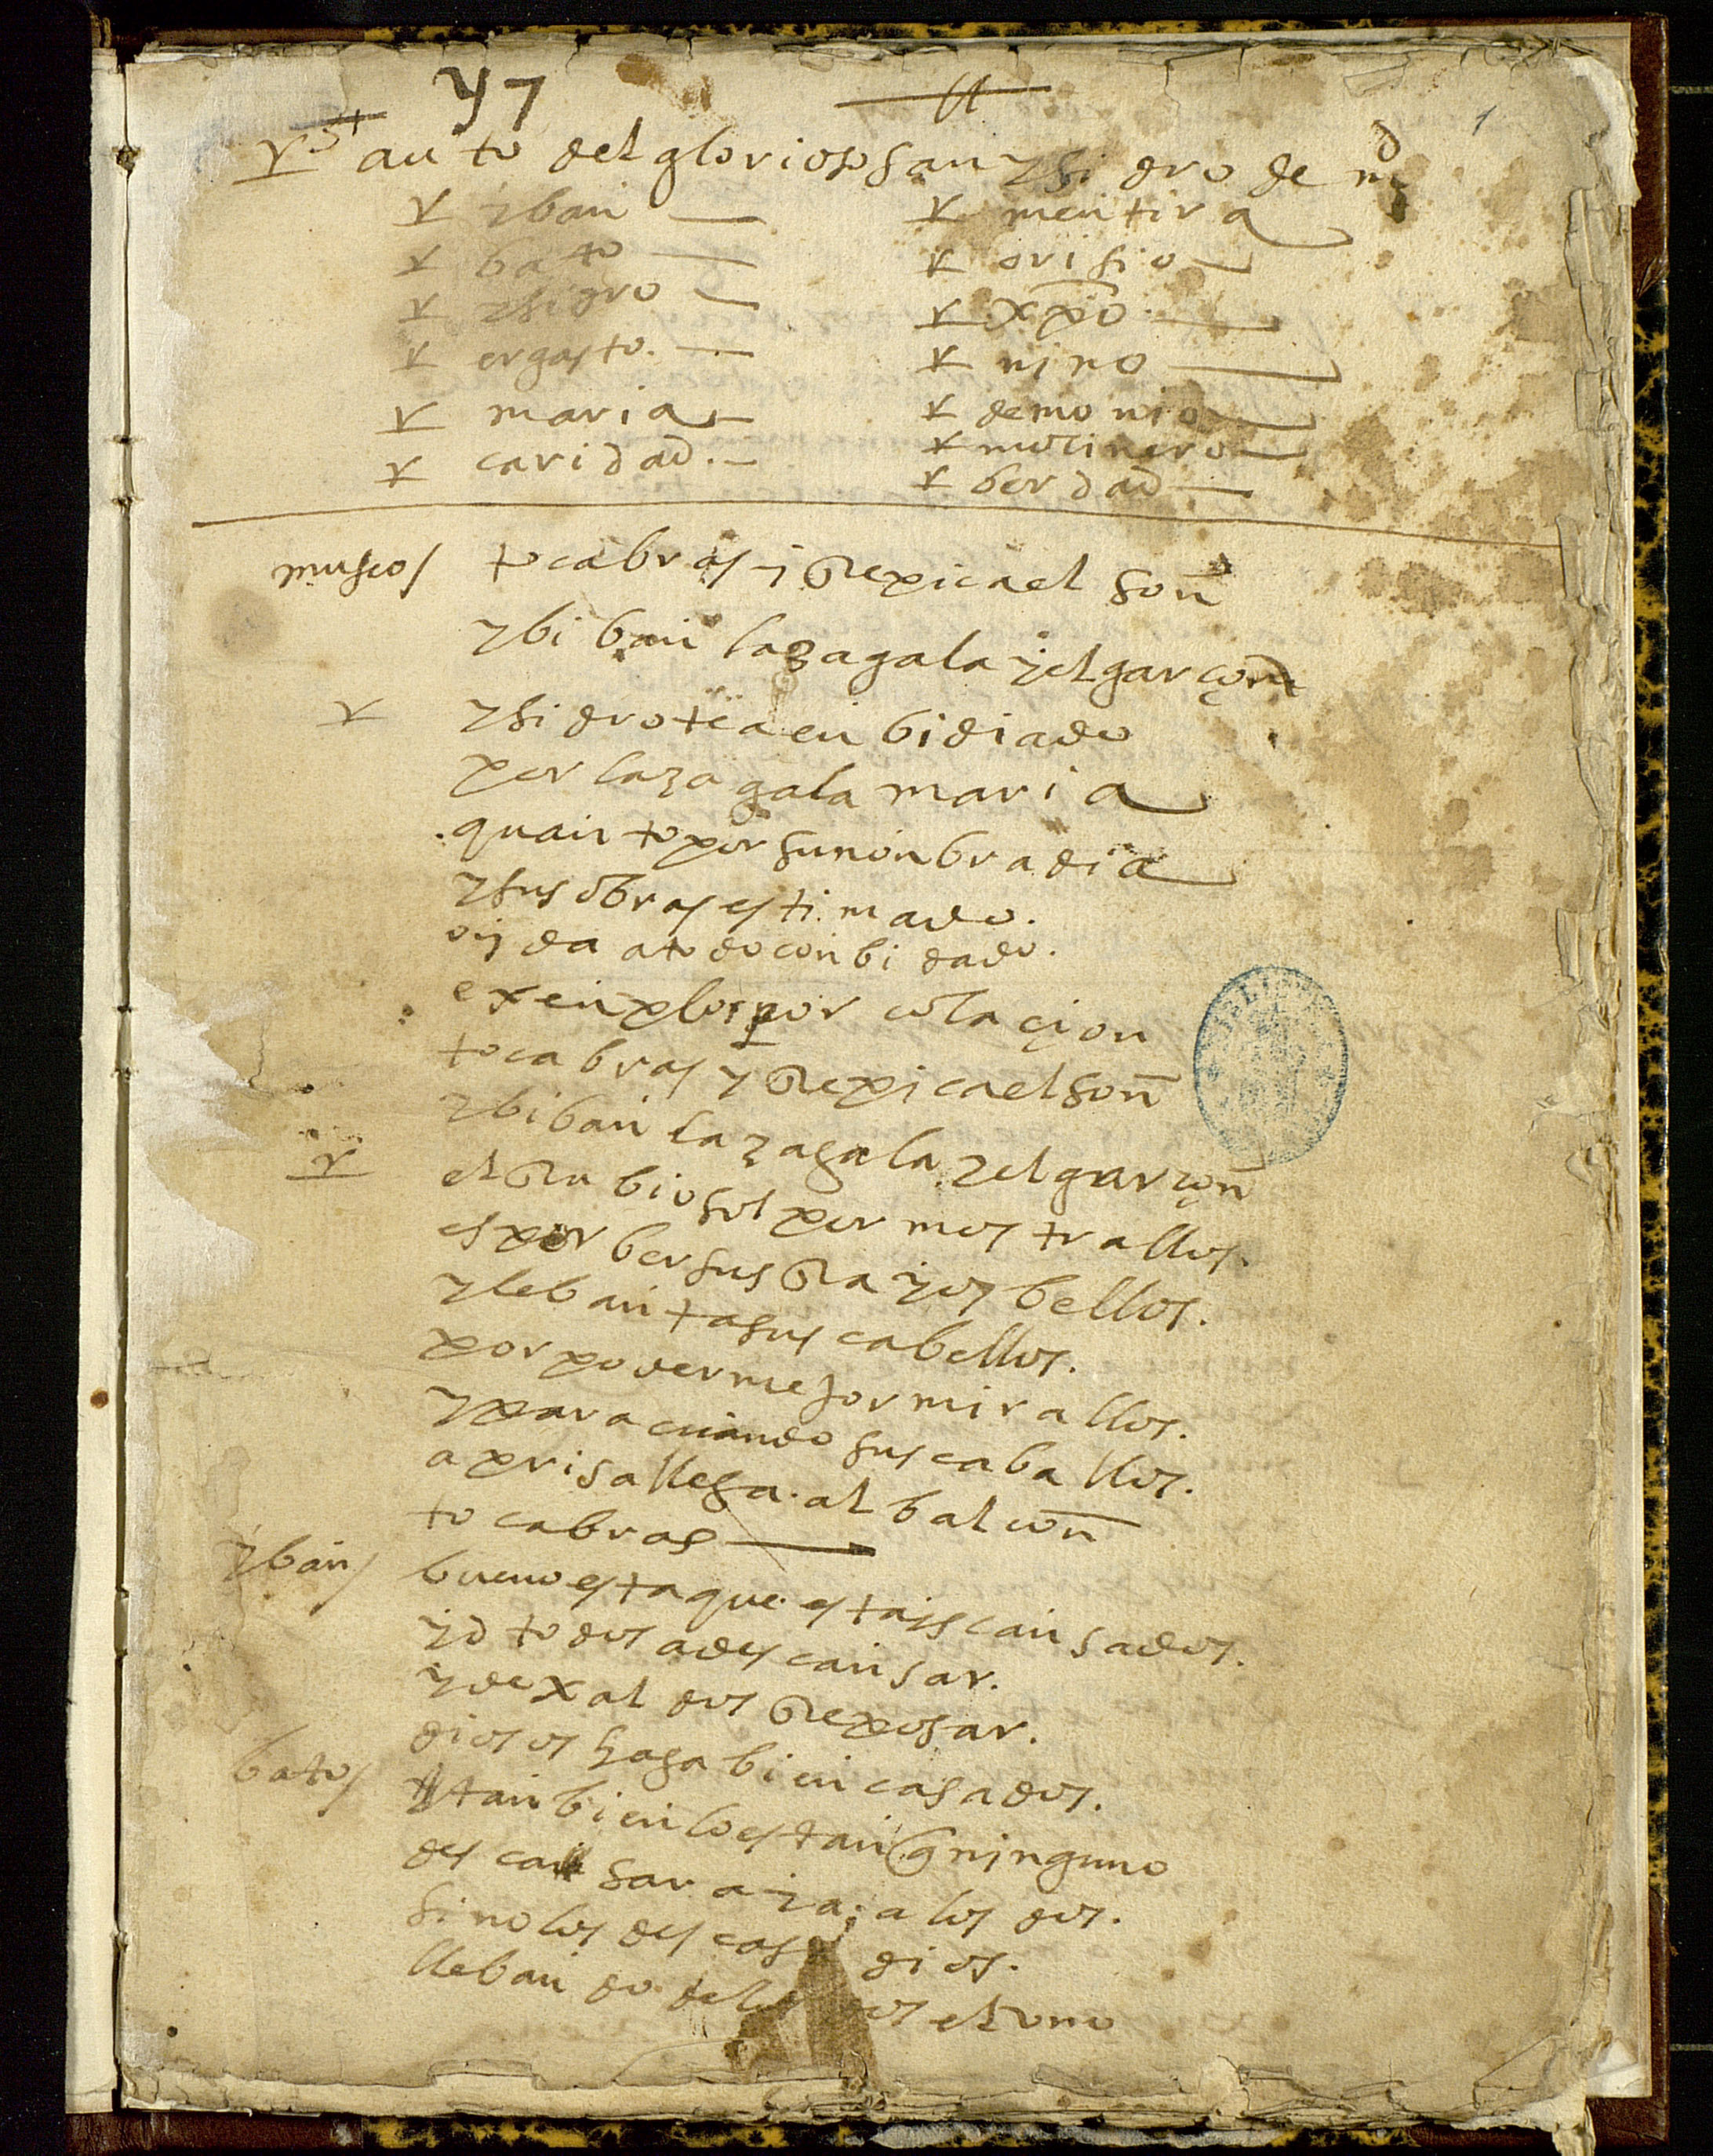 y7
1
auto del glorioso san ysidro de md
yban mentira
bato orisio
ysidro xpo
ergasto. nino
maria demonio
caridad. molinero
berdad
musicos toca bras y Repica el son
y biban la zagala y el garçon
ysidro sea enbidiado
por la zagala maria
quanto por su nonbradia
y sus obras estimado.
oy da a todo conbidado.
exenplos por colaçion
toca bras y Repica el son
y biban la zagala y el garçon
el Rubio sol por mostrallos.
es por ber sus Rayos bellos.
y lebanta sus cabellos.
por poder mejor mirallos.
y para cuando sus caballos.
aprisa llega. al balcon
toca bras
yban bueno esta que estais cansados.
yd todos a descansar.
y dexaldos Reposar.
dios os haga bien casados.
bato tanbien lo estan q ninguno
descansara ya a los dos.
si no los descasa dios.
llebando de los dos el uno